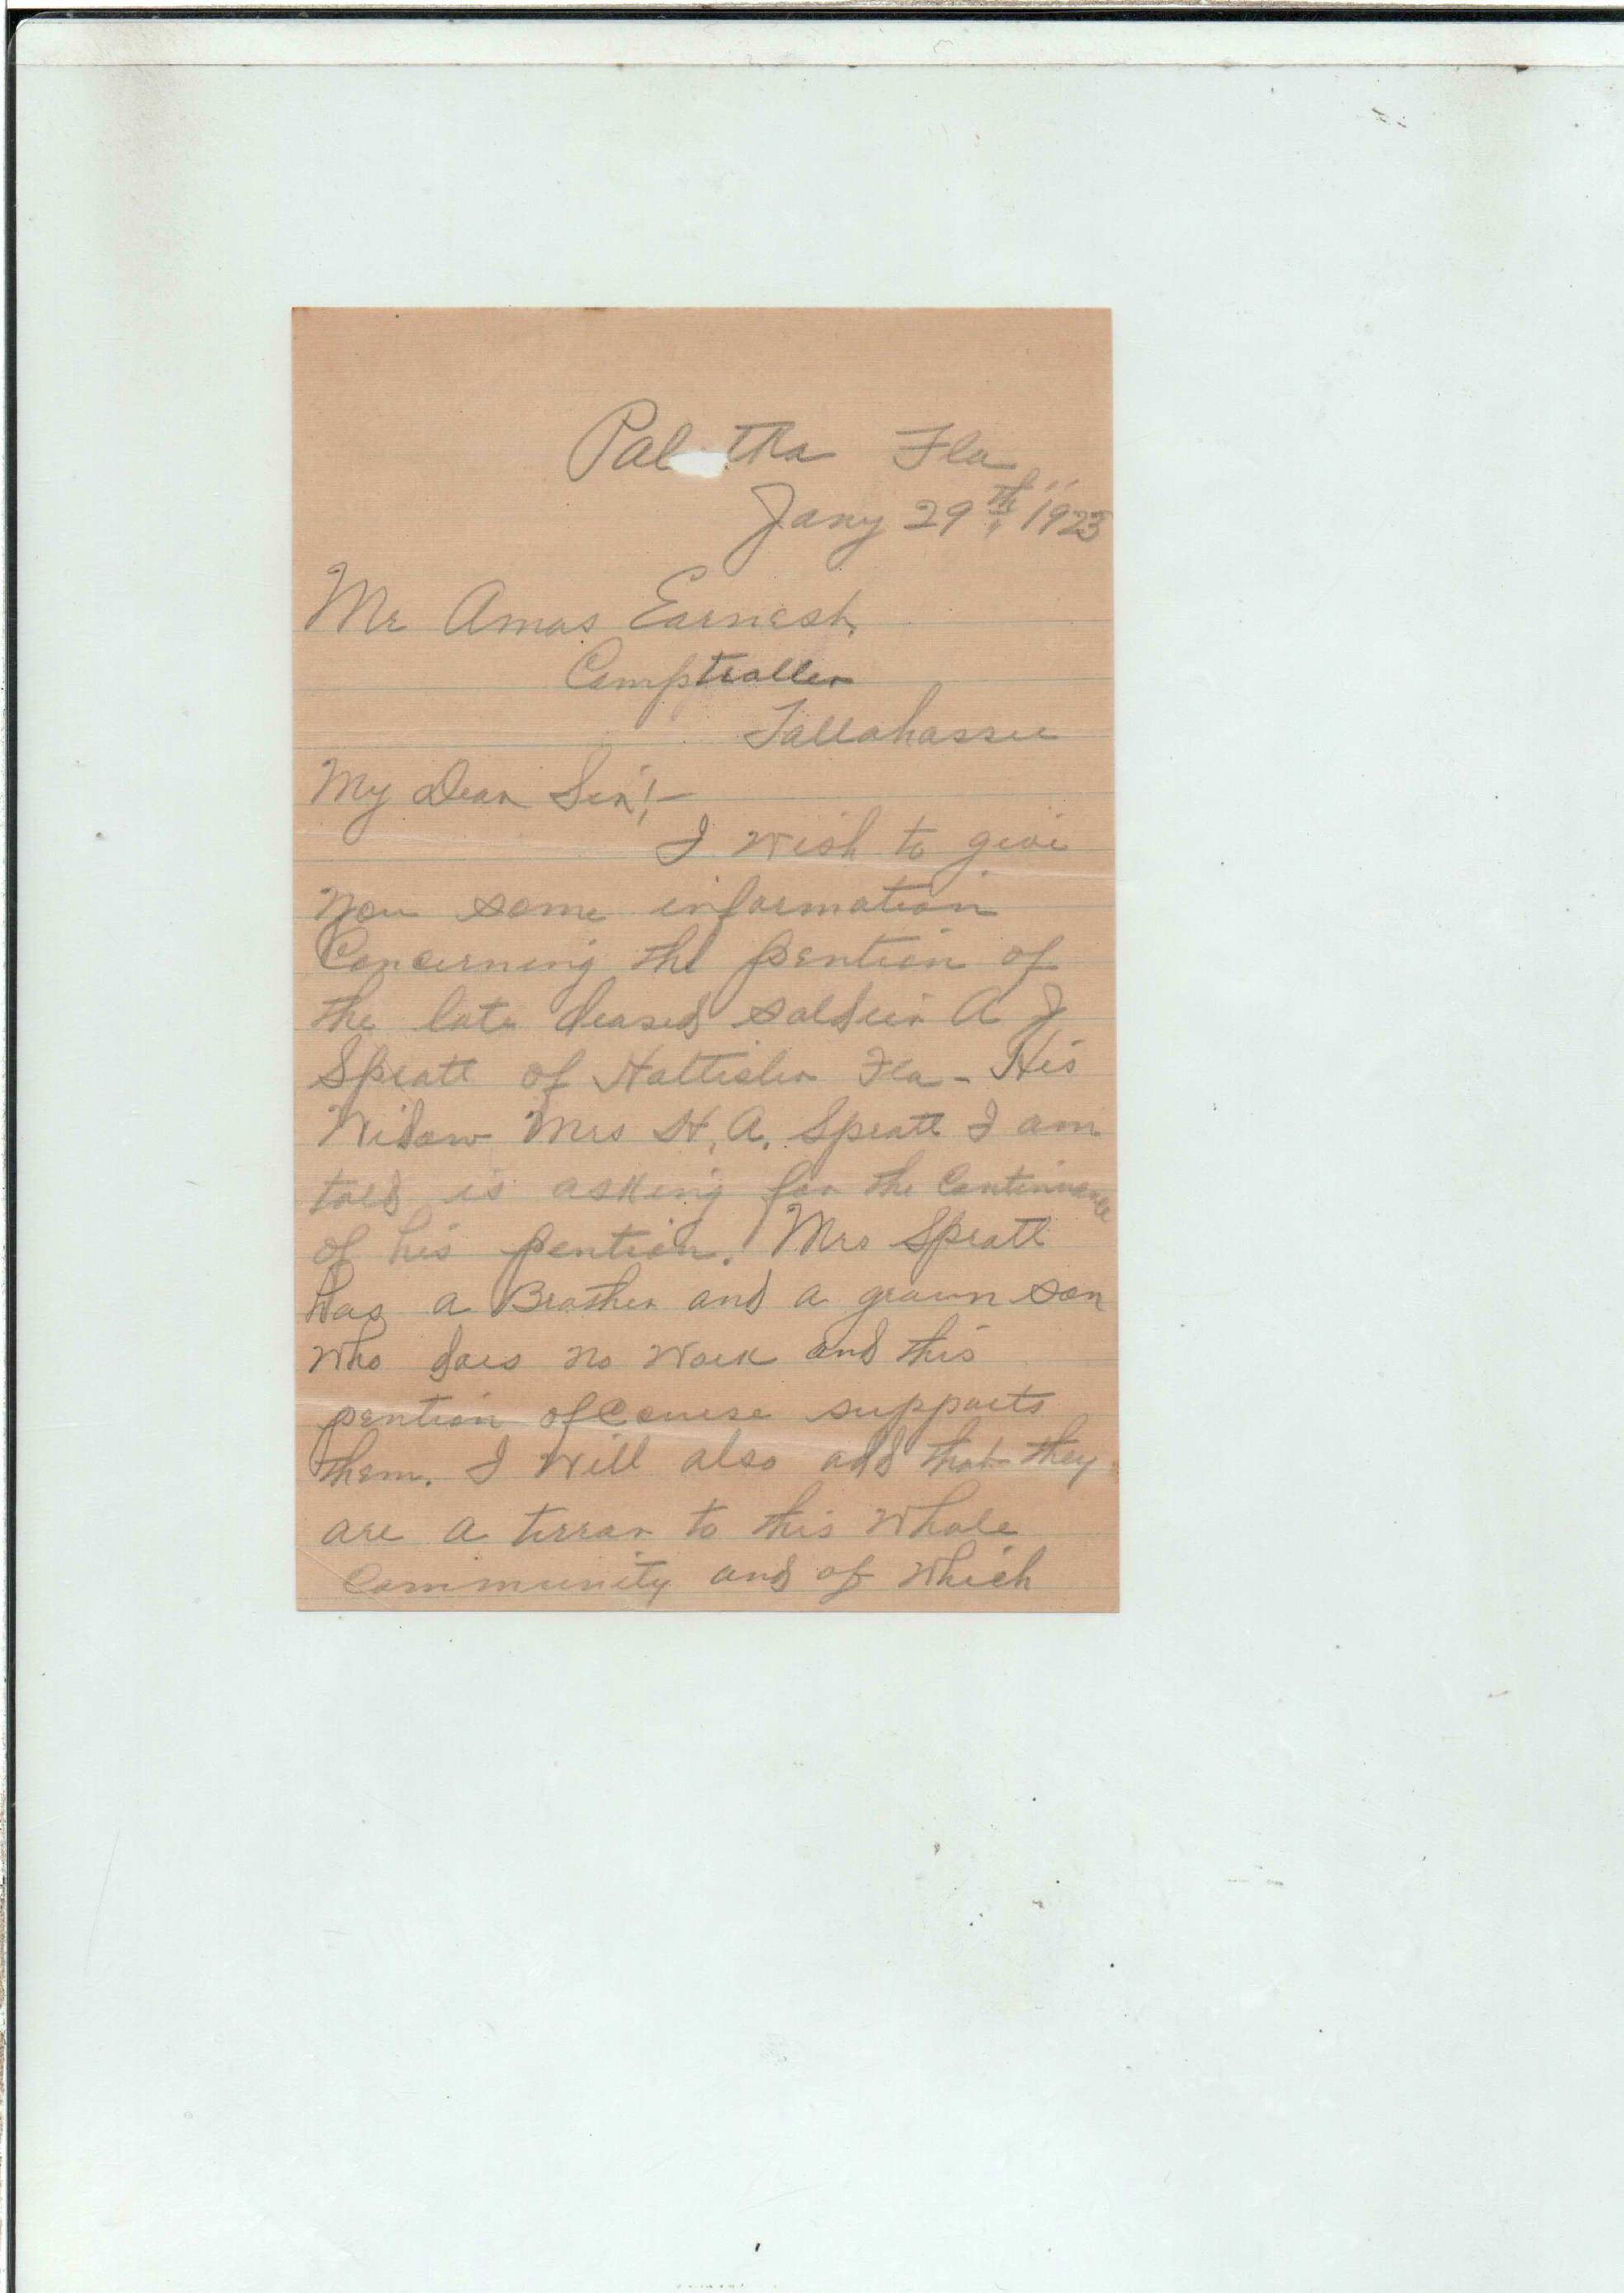 Pal tka Fla
Jany 29th, 1923
Mr Amos Earnest,
Comptroller
Tallahassee
My Dear Sir!-
I wish to give
you some information
Concerning the pention of
the late deased soldier A J
Spratt of Fla - His
Widow Mrs H. A. Spratt I am
told is asking for the Continuance
of his pention. Mrs Spratt
has a Brother and a grown son
who does no work and this
pention of course supports
them. I will also add that they
are a terror to this whole
Community and of which